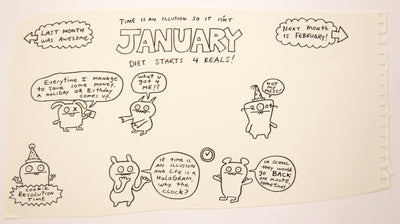 TIME IS AN ILLUSION SO IT ISN'T
JANUARY
DIET STARTS 4 REALS!
LAST MONTH
WAS AWESOME
NEXT MONTH
IS FEBRUARY!
EVERYTIME I MANAGE
TO SAVE SOME MONEY,
A HOLIDAY OR BIRTHDAY
COMES UP.
WHAT U
GOT 4
ME!?
COOKIE
RESOLUTION
TIME
IF TIME IS
AN ILLUSION
AND LIFE IS A
HOLOGRAM,
WHY THE
CLOCK?
IN SCHOOL
THEY WOULD
GO BACK
ONE MINUTE,
SOMETIMES.